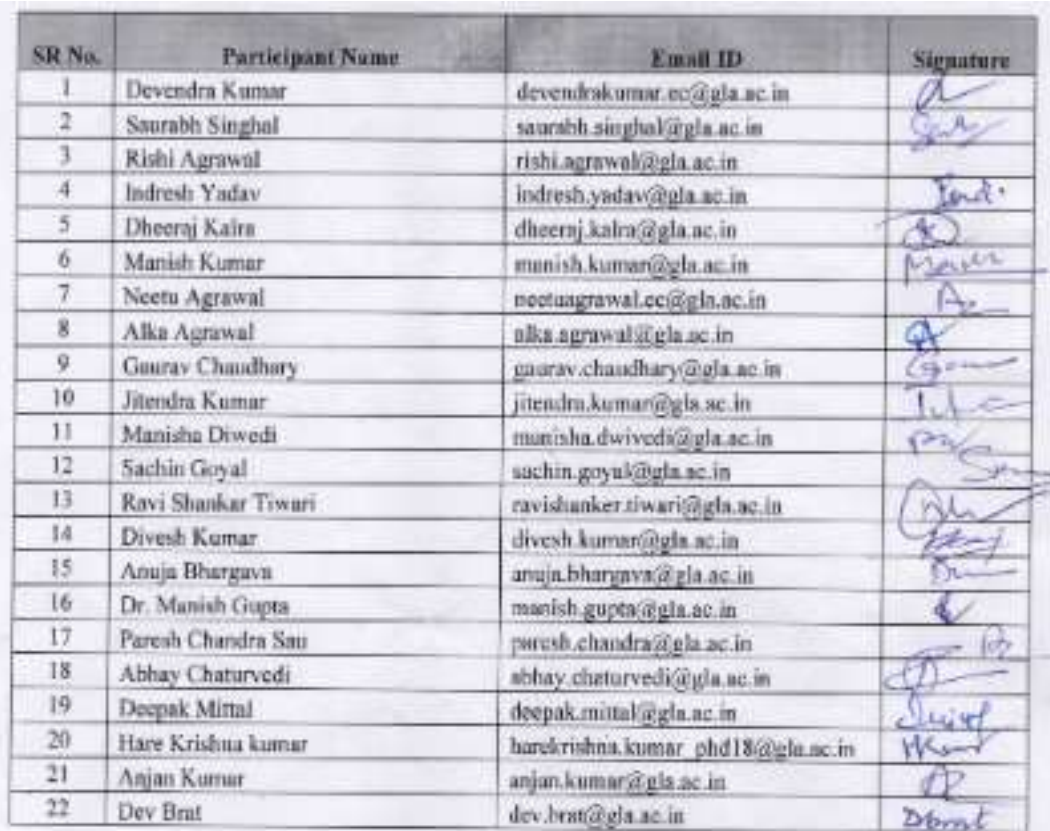 SR No. Participant Name Email ID Signature
1 Devendra Kumar devendrakumar.ec@gla.ac.in
2 Saurabh Singhal saurabh.singhal@gla.ac.in
3 Rishi Agrawal rishi.agrawal@gla.ac.in
4 Indresh Yadav indresh.yadav@gla.ac.in
5 Dheeraj Kalra dheeraj.kalra@gla.ac.in
6 Manish Kumar manish.kumar@gla.ac.in
7 Neetu Agrawal neetuagrawal.ec@gla.ac.in
8 Alka Agrawal alka.agrawal@gla.ac.in
9 Gaurav Chaudhary gaurav.chaudhary@gla.ac.in
10 Jitendra Kumar jitendra.kumar@gla.ac.in
11 Manisha Diwedi manisha.dwivedi@gla.ac.in
12 Sachin Goyal sachin.goyal@gla.ac.in
13 Ravi Shankar Tiwari ravishanker.tiwari@gla.ac.in
14 Divesh Kumar divesh.kumar@gla.ac.in
15 Anuja Bhargava anuja.bhargava@gla.ac.in
16 Dr. Manish Gupta manish.gupta@gla.ac.in
17 Paresh Chandra Sau paresh.chandra@gla.ac.in
18 Abhay Chaturvedi abhay.chaturvedi@gla.ac.in
19 Deepak Mittal deepak.mittal@gla.ac.in
20 Hare Krishna kumar harekrishna.kumar_phd18@gla.ac.in
21 Anjan Kumar anjan.kumar@gla.ac.in
22 Dev Brat dev.brat@gla.ac.in Dbrat